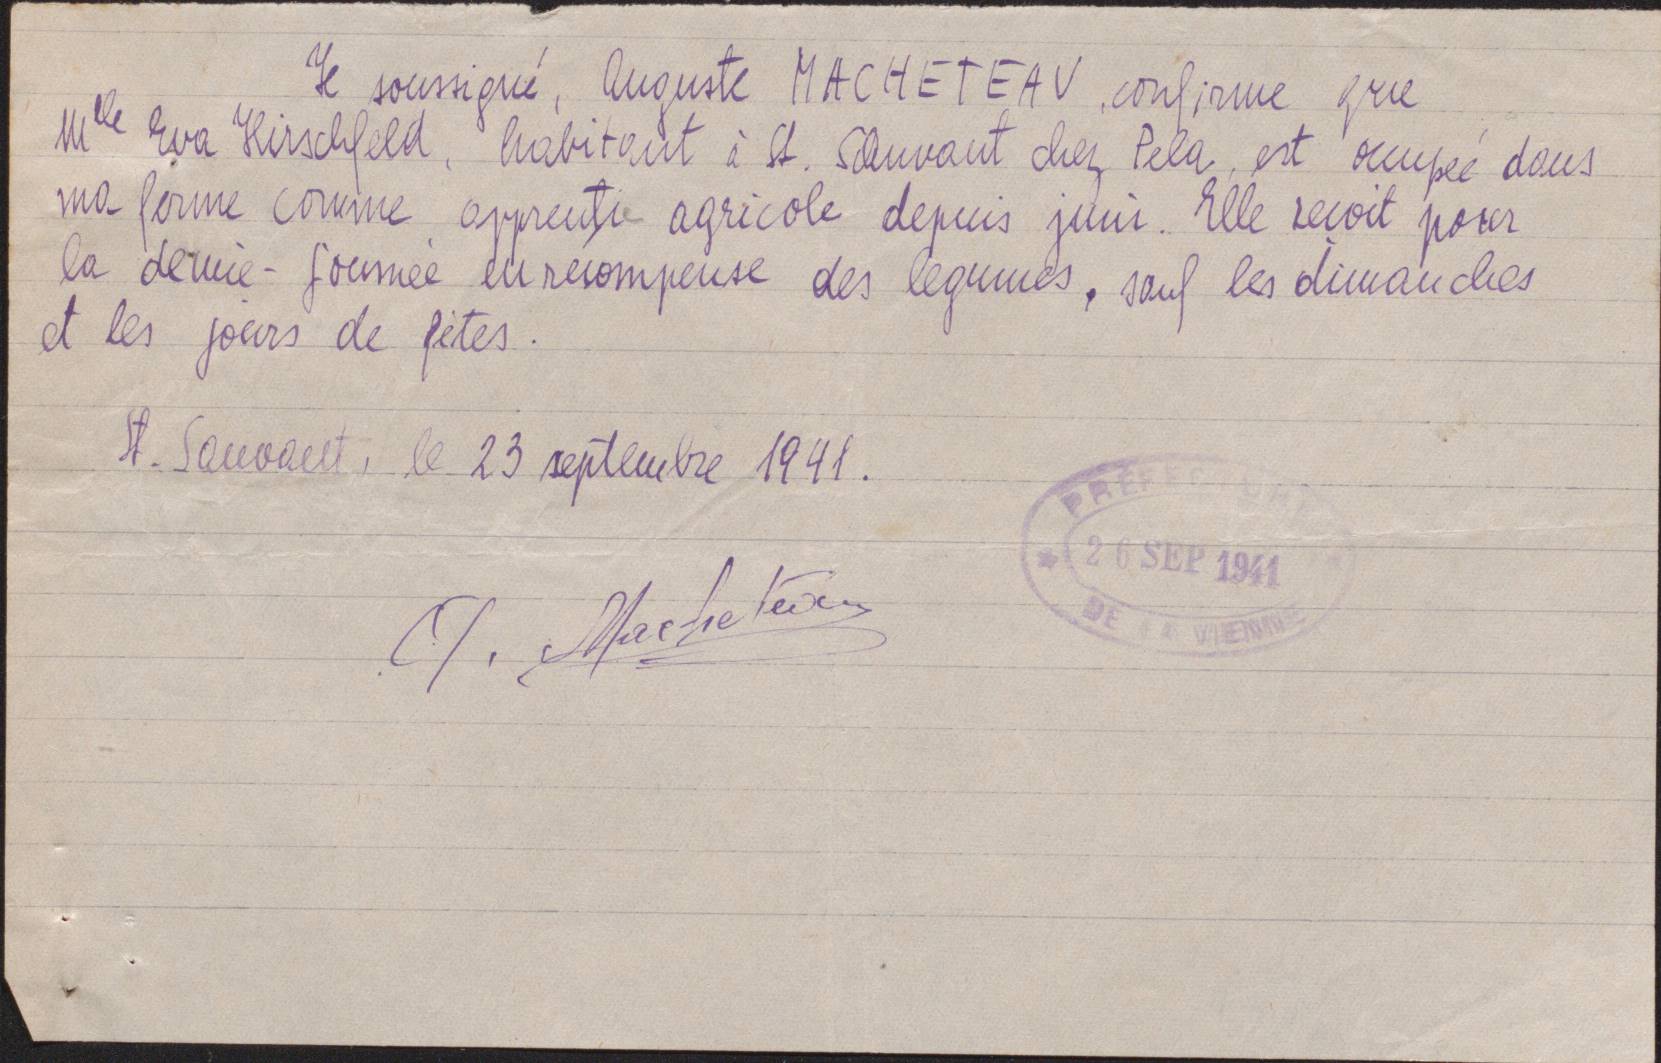 Je soussigné, Auguste MACHETEAU, confirme que
Mlle Eva Hirschfeld, habitant à St. Sauvant chez Pela, est occupeé dans
ma ferme comme apprentie agricole depuis juin. Elle recoit pour
la demie-journeé en recompense des legumes, sauf les dimanches
et les jours de fêtes.
St. Sauvant, le 23 septembre 1941.
PRÉFECTURE
* 26 SEP 1941 *
DE LA VIENNE
A. Macheteau